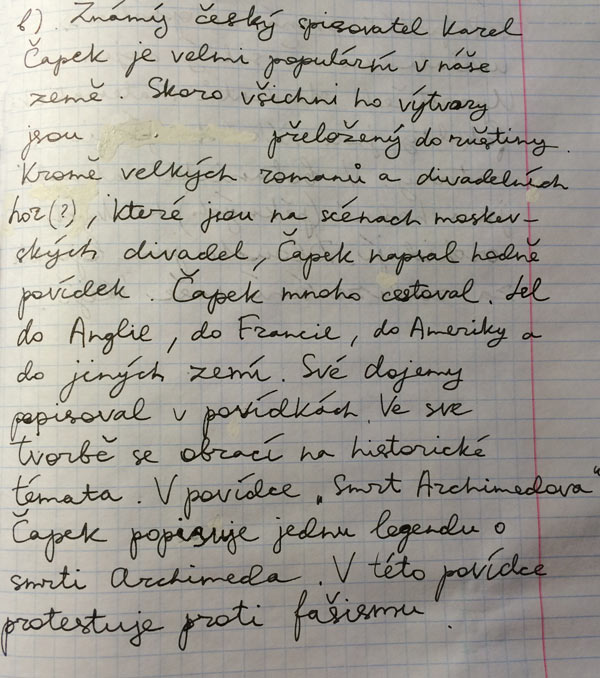 b). Známý český spisovatel Karel
Čapek je velmi populární v náše
země. Skoro všichni ho výtvory
jsou přeložený do ruštiny.
Kromě velkých romanů a divadelních
hor(?), které jsou na scénach moskev-
ských divadel, Čapek napsal hodně
povídek. Čapek mnoho cestoval. Jel
do Anglie, do Francie, do Ameriky a
do jiných zemí. Své dojemy
popisoval v povídkách. Ve sve
tvorbě se obrací na historické
témata. V povídce „Smrt Archimedova“
Čapek popisuje jednu legendu o
smrti Archimeda. V této povídce
protestuje proti fašismu.